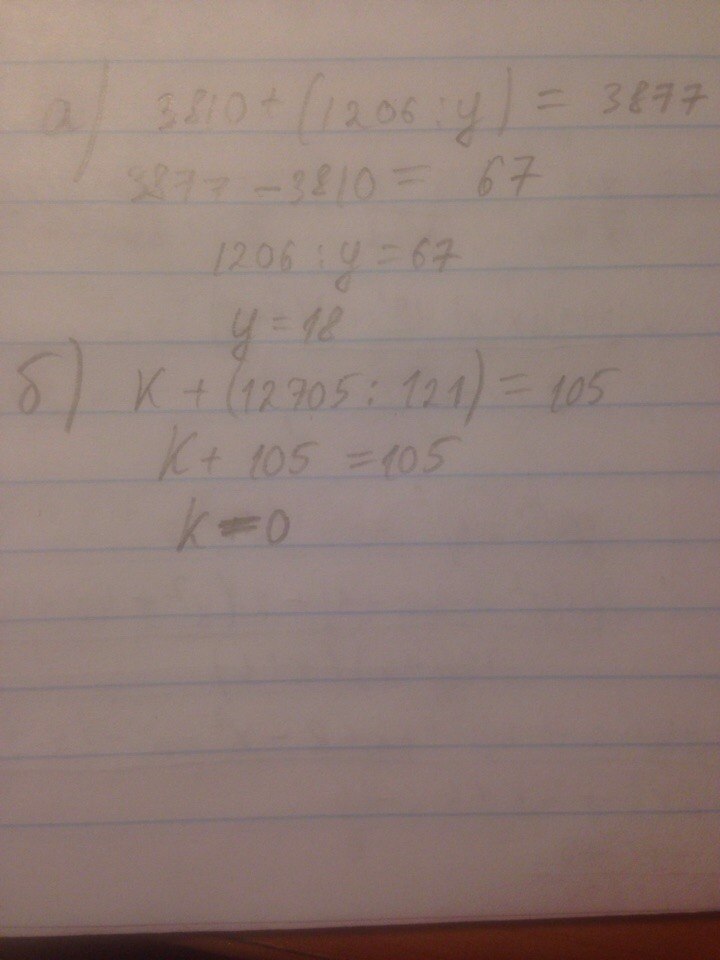 а) 3810 + (1206 : y) = 3877
3877 - 3810 = 67
1206 : y = 67
y = 18
б) K + (12705 : 121) = 105
K + 105 = 105
k = 0